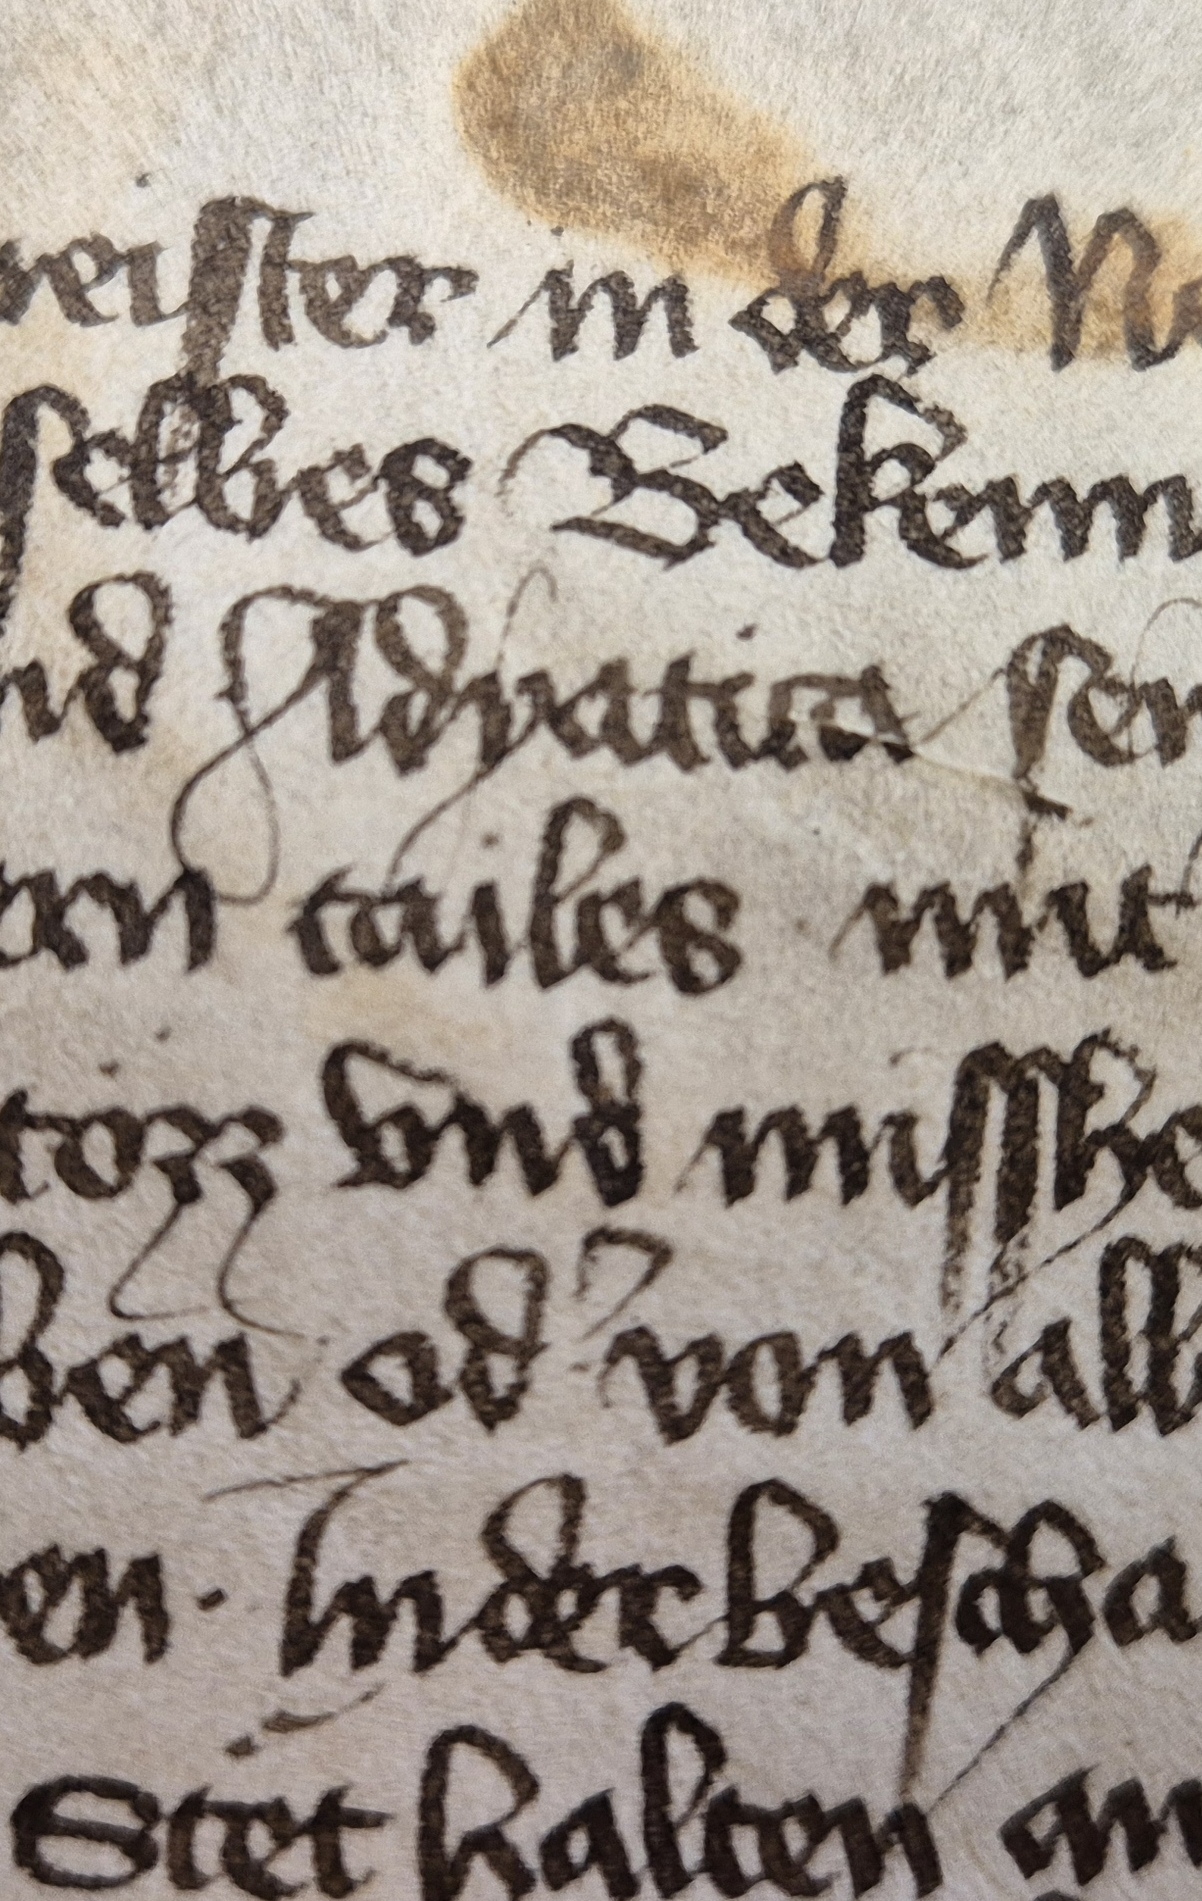 meister in der Ne
selbes Bekenn
nd Adúatus ser
an tailes mit
tözz vnd misshe
ben od' von all
en. In der bescha
Stet halten an